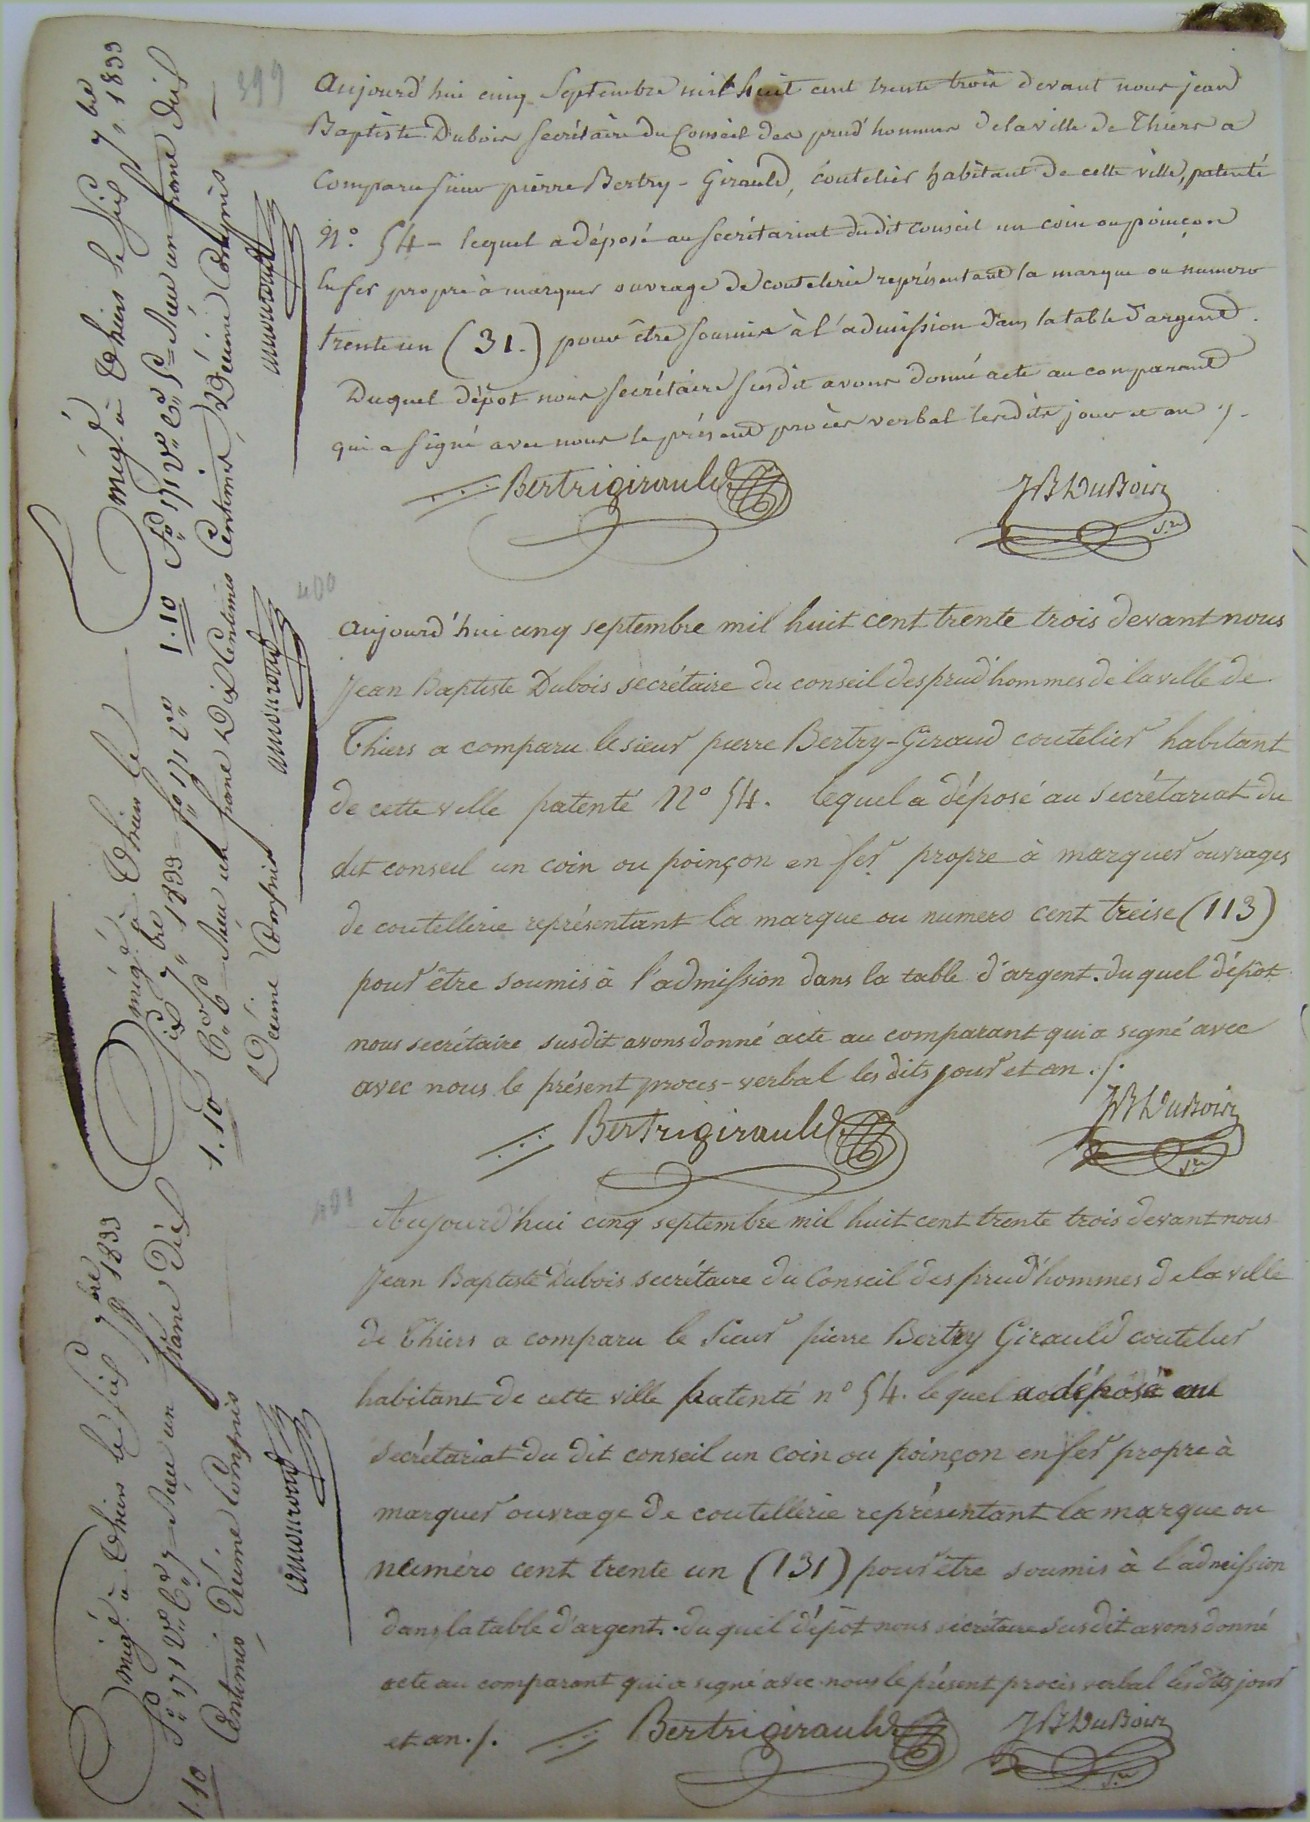 399
Aujourd'hui cinq Septembre mil huit cent trente trois devant nous jean
Baptiste Dubois Secrétaire du Conseil des prud'hommes de la ville de Thiers a
Comparu Sieur pierre Bertry - Girauld, coutelier habitant de cette ville, patenté
N.° 54 - lequel a déposé au Secrétariat du dit conseil un coin ou poinçon
En fer propre à marquer ouvrage de coutelerie représentant la marque ou numero
trente un (31.) pour être Soumis à l'admission dans la table d'argent.
Duquel dépot nous Secrétaire Susdit avons donné acte au comparant
qui a Signé avec nous le présent procès verbal lesdits jour et an ./.
Bertrigirauld JB DuBois
S.re
400
Aujourd'hui cinq septembre mil huit cent trente trois devant nous
Jean Baptiste Dubois secrétaire du conseil des prud'hommes de la ville de
Thiers a comparu le sieur pierre Bertry-Giraud coutelier habitant
de cette ville patenté N° 54. lequel a déposé au secrétariat du
dit conseil un coin ou poinçon en fer propre à marquer ouvrages
de coutellerie représentant la marque ou numero cent treise (113)
pour être soumis à l'admission dans la table d'argent. du quel dépôt
nous secrétaire susdit avons donné acte au comparant qui a signé avec
avec nous le présent proces-verbal les dits jour et an ./.
Bertrigirauld JB DuBois
S.re
401
Aujourd'hui cinq septembre mil huit cent trente trois devant nous
Jean Baptiste Dubois secrétaire du Conseil des prud'hommes de la ville
de Thiers a comparu le Sieur pierre Bertry Girauld coutelier
habitant de cette ville patenté n° 54. lequel a déposé au
secrétariat du dit conseil un coin ou poinçon en fer propre à
marquer ouvrage de coutellerie représentant la marque ou
numéro cent trente un (131) pour être soumis à l'admission
dans la table d'argent. du quel dépôt nous secrétaire susdit avons donné
acte au comparant qui a signé avec nous le présent procès verbal les dits jour
et an ./. Bertrigirauld JB DuBois
S.re
Enregé à Thiers le Six 7bre 1833
F° 171 V° Reçu un franc Dix
1.10 Centimes, Décime Compris
Enregé à Thiers le
Six 7bre 1833 F° 171 V°
Reçu un franc Dix Centimes
1.10 Décime Compris
Enregé à Thiers le Six 7bre 1833
F° 171 V° Reçu un franc Dix
1.10 Centimes, Décime Compris